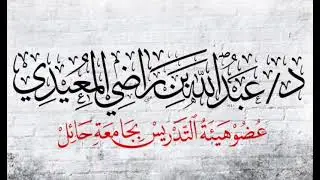 د/عَبْدُ اللَّهِ بْنِ رَاضِي المُعَيْدِي
عُضْوُ هَيْئَةِ التَّدْرِيسِ بِجَامِعَةِ حَائِلْ